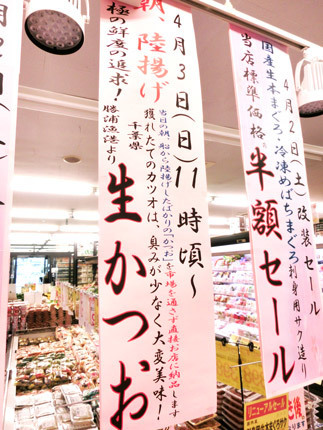 4月2日(土)改装セール
国産生本まぐろ、冷凍めばちまぐろ刺身用サク造り
当店標準価格半額セール
4月3日(日)11時頃〜
当日の朝、船から陸揚げしたばかりの「かつお」を市場を通さず直接お店に納品します
獲れたてのカツオは、臭みが少なく大変美味!
朝、陸揚げ
千葉県
勝浦漁港より
生かつお
極の鮮度の追求!
リニューアルセール